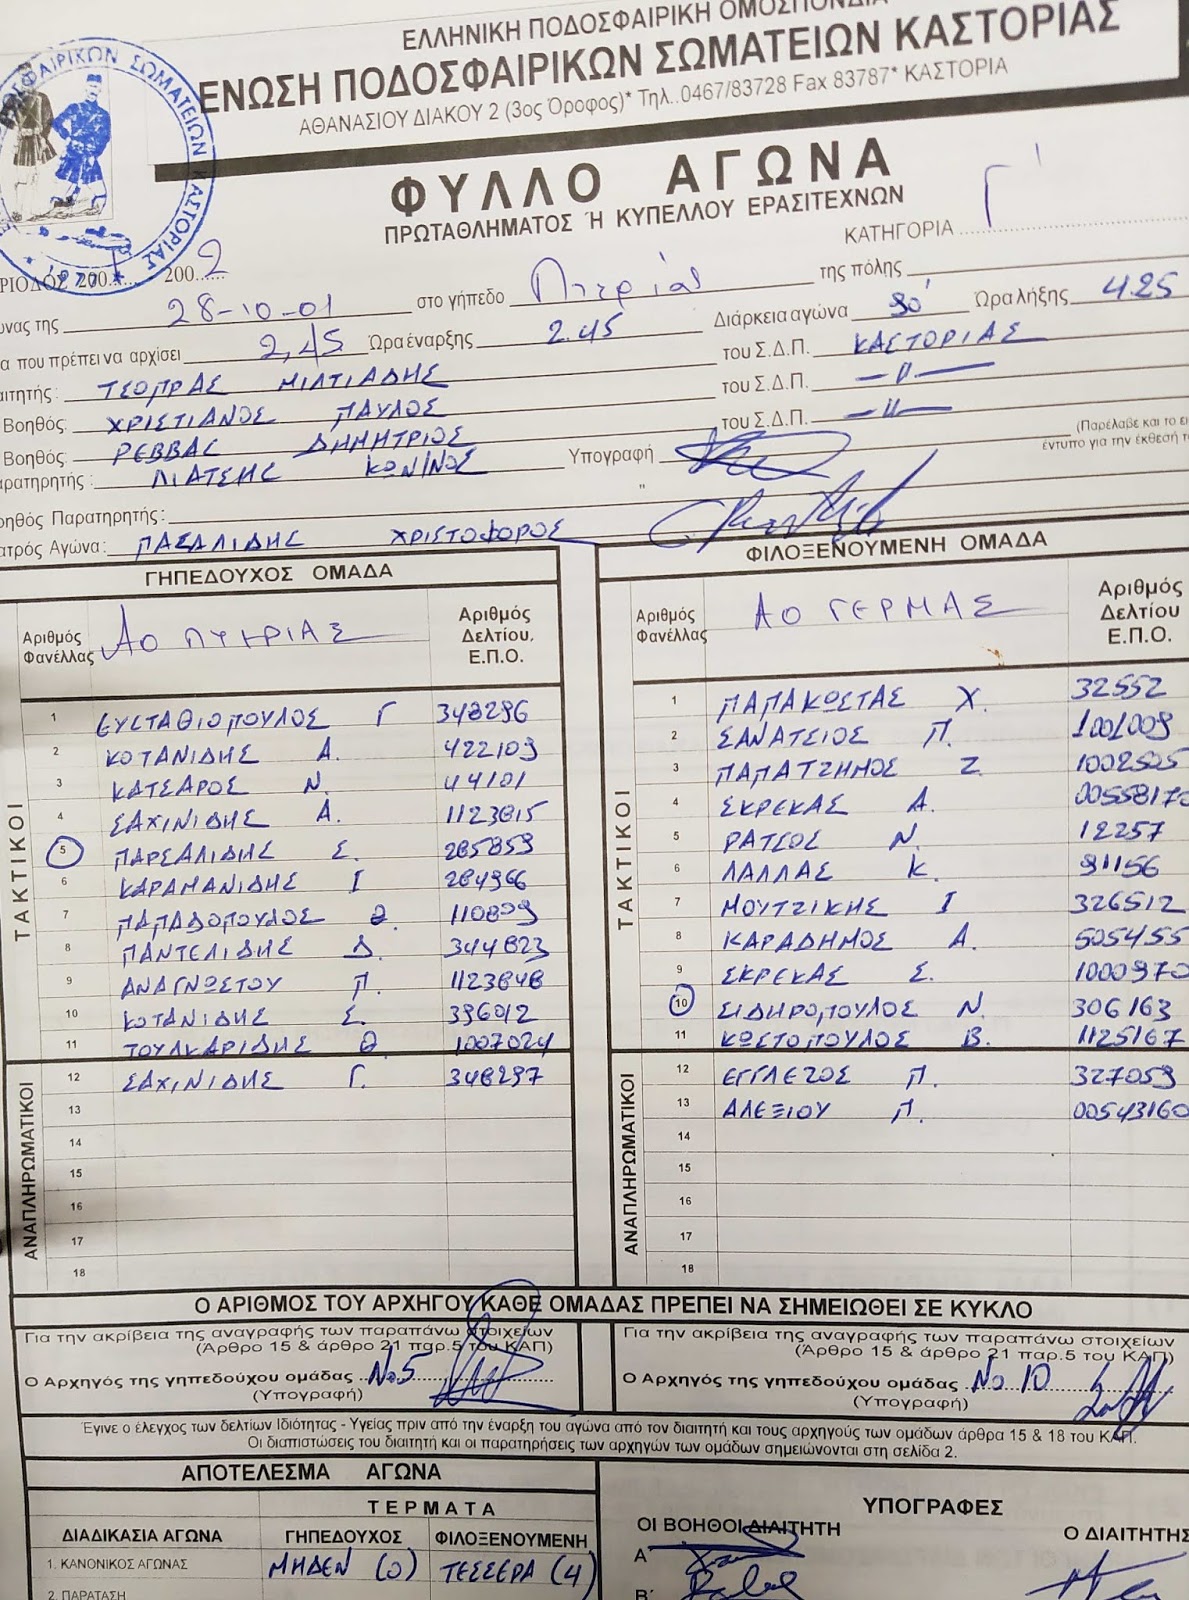 ΕΛΛΗΝΙΚΗ ΠΟΔΟΣΦΑΙΡΙΚΗ ΟΜΟΣΠΟΝΔΙΑ
ΕΝΩΣΗ ΠΟΔΟΣΦΑΙΡΙΚΩΝ ΣΩΜΑΤΕΙΩΝ ΚΑΣΤΟΡΙΑΣ
ΑΘΑΝΑΣΙΟΥ ΔΙΑΚΟΥ 2 (3ος Όροφος)* Τηλ..0467/83728 Fax 83787* ΚΑΣΤΟΡΙΑ
ΦΥΛΛΟ ΑΓΩΝΑ
ΠΡΩΤΑΘΛΗΜΑΤΟΣ Ή ΚΥΠΕΛΛΟΥ ΕΡΑΣΙΤΕΧΝΩΝ
ΚΑΤΗΓΟΡΙΑ Γ'
ΡΙΟΔΟΣ 200 1 200 2
ώνας της 28-10-01 στο γήπεδο της πόλης
α που πρέπει να αρχίσει 2,45 Ώρα έναρξης 2.45 Διάρκεια αγώνα 90' Ώρα λήξης 4.25
αιτητής: ΤΣΟΠΡΑΣ ΜΙΛΤΙΑΔΗΣ του Σ.Δ.Π. ΚΑΣΤΟΡΙΑΣ
Βοηθός: ΧΡΙΣΤΙΑΝΟΣ ΠΑΥΛΟΣ του Σ.Δ.Π. —〃—
Βοηθός: ΡΕΒΒΑΣ ΔΗΜΗΤΡΙΟΣ του Σ.Δ.Π. —〃—
αρατηρητής: ΛΙΑΤΣΗΣ ΚΩΝ/ΝΟΣ Υπογραφή (Παρέλαβε και το ει
έντυπο για την έκθεσή τ
οηθός Παρατηρητής: "
ατρός Αγώνα: ΠΑΣΑΛΙΔΗΣ ΧΡΙΣΤΟΦΟΡΟΣ
ΓΗΠΕΔΟΥΧΟΣ ΟΜΑΔΑ
Αριθμός Φανέλλας ΑΟ ΠΥΕΡΙΑΣ Αριθμός Δελτίου, Ε.Π.Ο.
ΤΑΚΤΙΚΟΙ
1 ΕΥΣΤΑΘΙΟΠΟΥΛΟΣ Γ 348296
2 ΚΟΤΑΝΙΔΗΣ Α. 422109
3 ΚΑΤΣΑΡΟΣ Ν. 44101
4 ΣΑΧΙΝΙΔΗΣ Α. 1123815
5 ΠΑΡΣΑΛΙΔΗΣ Σ. 285859
6 ΚΑΡΑΜΑΝΙΔΗΣ Ι 284966
7 ΠΑΠΑΔΟΠΟΥΛΟΣ Θ. 110899
8 ΠΑΝΤΕΛΙΔΗΣ Δ. 344823
9 ΑΝΑΓΝΩΣΤΟΥ Π. 1123848
10 ΚΟΤΑΝΙΔΗΣ Σ. 396012
11 ΤΟΥΛΚΑΡΙΔΗΣ Θ. 1007024
ΑΝΑΠΛΗΡΩΜΑΤΙΚΟΙ
12 ΣΑΧΙΝΙΔΗΣ Γ. 348297
13
14
15
16
17
18
ΦΙΛΟΞΕΝΟΥΜΕΝΗ ΟΜΑΔΑ
Αριθμός Φανέλλας ΑΟ ΓΕΡΜΑΣ Αριθμός Δελτίου Ε.Π.Ο.
ΤΑΚΤΙΚΟΙ
1 ΠΑΠΑΚΩΣΤΑΣ Χ. 32552
2 ΣΑΝΑΤΣΙΟΣ Π. 1001009
3 ΠΑΠΑΤΖΗΜΟΣ Ζ. 1002505
4 ΣΚΡΕΚΑΣ Α. 00558170
5 ΡΑΤΣΟΣ Ν. 12257
6 ΛΑΛΛΑΣ Κ. 91156
7 ΜΟΥΤΖΙΚΗΣ Ι 326512
8 ΚΑΡΑΔΗΜΟΣ Α. 505455
9 ΣΚΡΕΚΑΣ Σ. 1000970
10 ΣΙΔΗΡΟΠΟΥΛΟΣ Ν. 306163
11 ΚΩΣΤΟΠΟΥΛΟΣ Β. 1125167
ΑΝΑΠΛΗΡΩΜΑΤΙΚΟΙ
12 ΕΓΓΛΕΖΟΣ Π. 327059
13 ΑΛΕΞΙΟΥ Π. 00543160
14
15
16
17
18
Ο ΑΡΙΘΜΟΣ ΤΟΥ ΑΡΧΗΓΟΥ ΚΑΘΕ ΟΜΑΔΑΣ ΠΡΕΠΕΙ ΝΑ ΣΗΜΕΙΩΘΕΙ ΣΕ ΚΥΚΛΟ
Για την ακρίβεια της αναγραφής των παραπάνω στοιχείων
(Άρθρο 15 & άρθρο 21 παρ.5 του ΚΑΠ)
Ο Αρχηγός της γηπεδούχου ομάδας Νο 5
(Υπογραφή)
Για την ακρίβεια της αναγραφής των παραπάνω στοιχείων
(Άρθρο 15 & άρθρο 21 παρ.5 του ΚΑΠ)
Ο Αρχηγός της γηπεδούχου ομάδας Νο 10
(Υπογραφή)
Έγινε ο έλεγχος των δελτίων Ιδιότητας - Υγείας πριν από την έναρξη του αγώνα από τον διαιτητή και τους αρχηγούς των ομάδων άρθρα 15 & 18 του ΚΑΠ.
Οι διαπιστώσεις του διαιτητή και οι παρατηρήσεις των αρχηγών των ομάδων σημειώνονται στη σελίδα 2.
ΑΠΟΤΕΛΕΣΜΑ ΑΓΩΝΑ
ΤΕΡΜΑΤΑ
ΔΙΑΔΙΚΑΣΙΑ ΑΓΩΝΑ ΓΗΠΕΔΟΥΧΟΣ ΦΙΛΟΞΕΝΟΥΜΕΝΗ
1. ΚΑΝΟΝΙΚΟΣ ΑΓΩΝΑΣ ΜΗΔΕΝ (0) ΤΕΣΣΕΡΑ (4)
2. ΠΑΡΑΤΑΣΗ
ΥΠΟΓΡΑΦΕΣ
ΟΙ ΒΟΗΘΟΙ ΔΙΑΙΤΗΤΗ Ο ΔΙΑΙΤΗΤΗΣ
Α
Β'